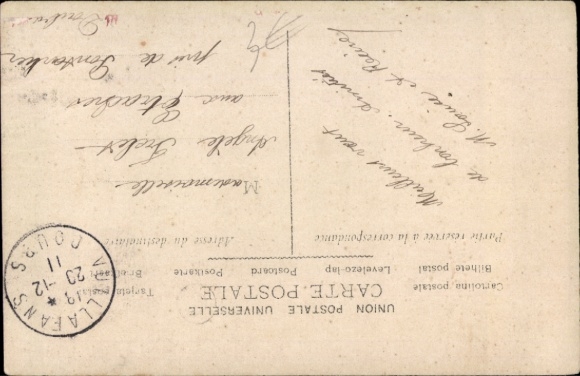 UNION POSTALE UNIVERSELLE
CARTE POSTALE
Cartolina postale Tarjeta postal
Bilhete postal Levelezo-lap Postcard Postkarte
Partie réservée à la correspondance
Adresse du destinataire
Meilleurs vœux
de bonheur. Amitiés
M. Louise et
Mademoiselle
Angèle
aux
près de Pontarlier
Doubs
VUILLAFANS
DOUBS
23-12
11